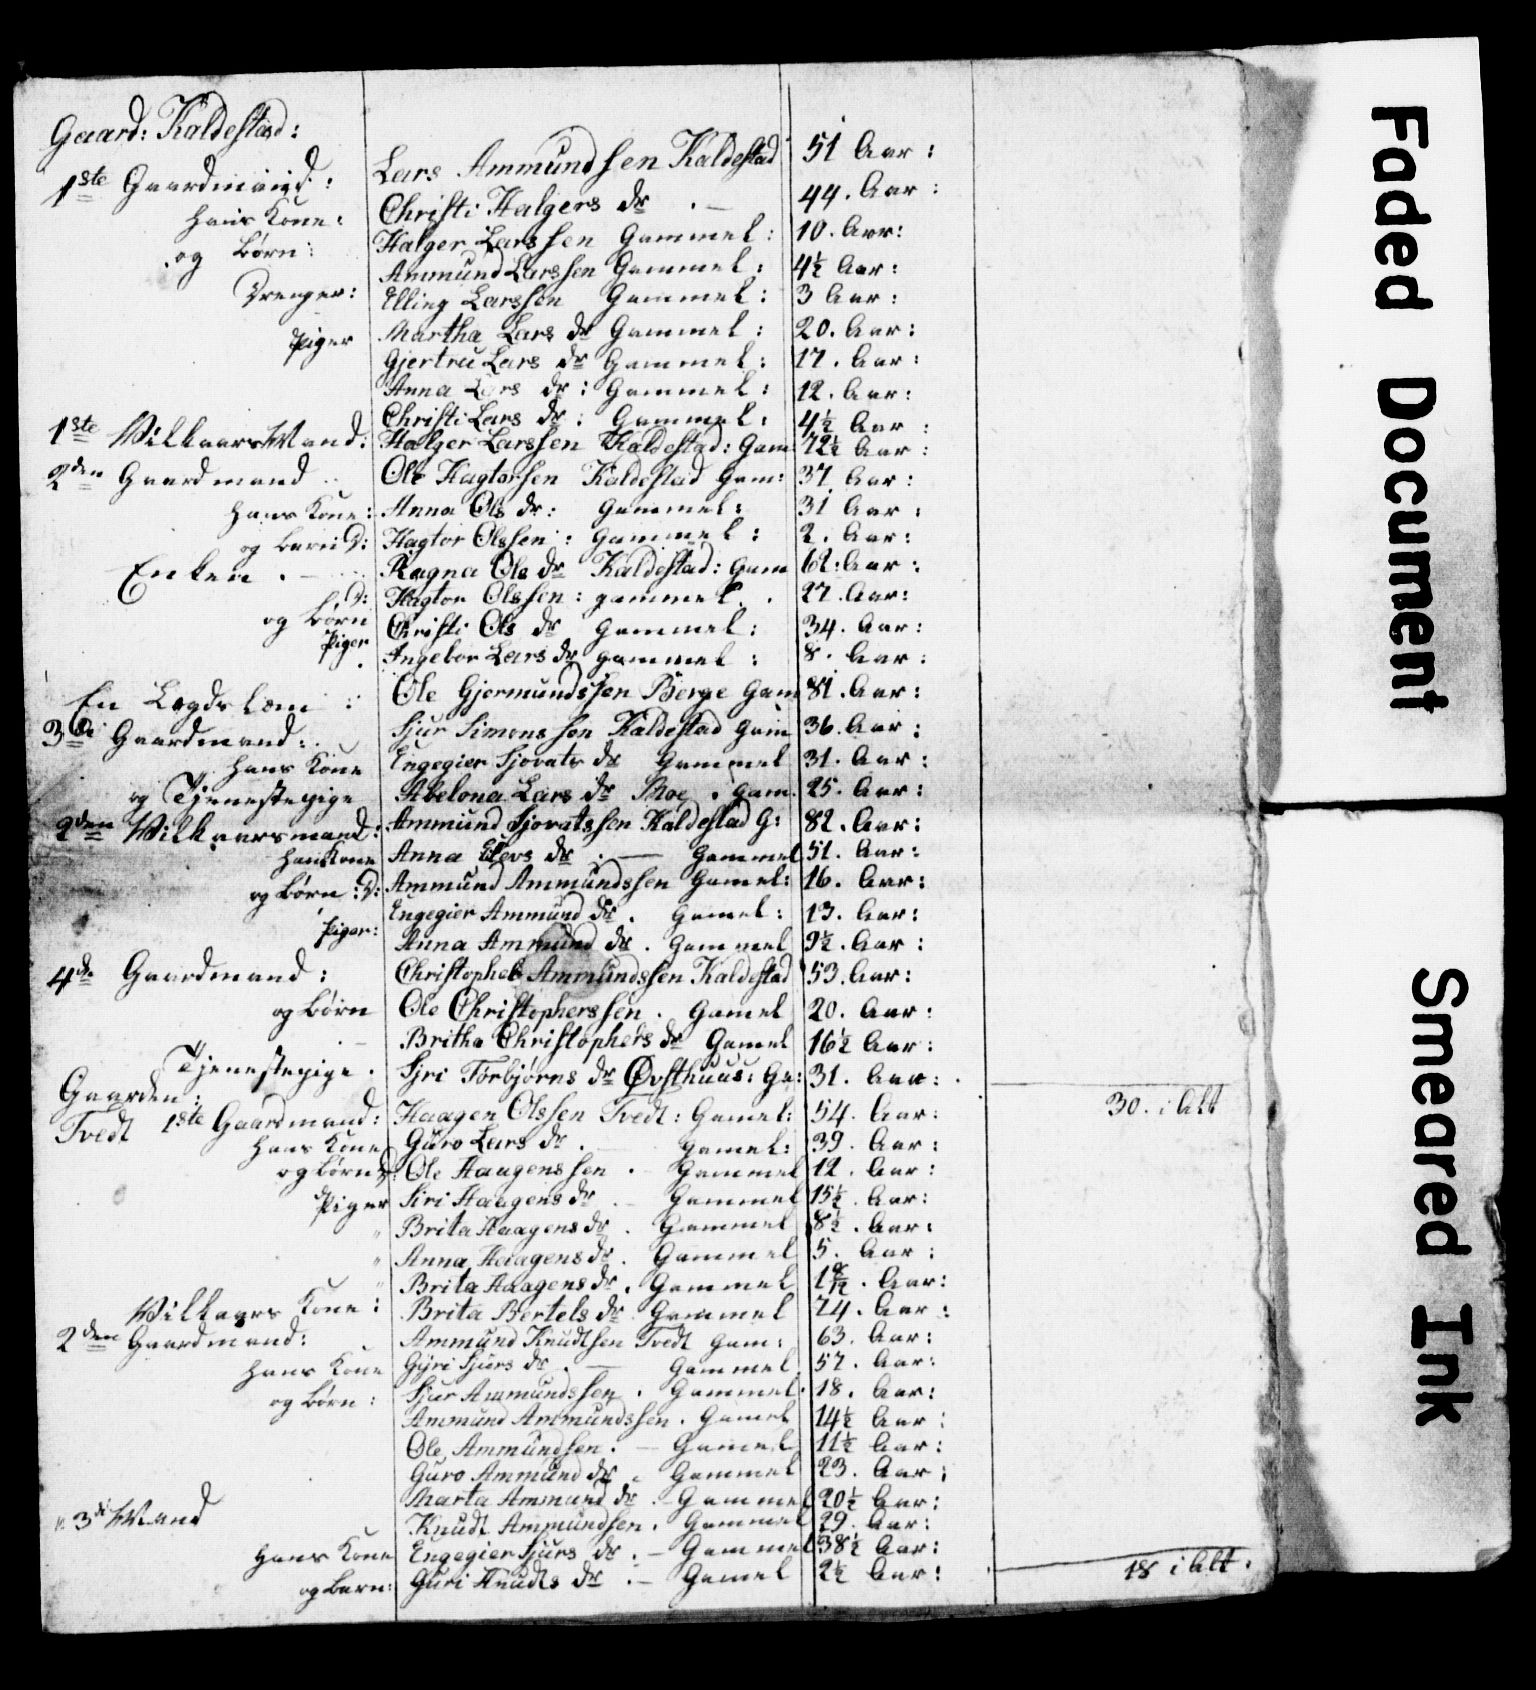 Gaard: Kaldestad:
1ste Gaardmand: Lars Ammundssen Kaldestad 51 Aar:
hans Kone: Christi Halgers dr . — 44. Aar:
og Børn: Halger Larssen Gammel: 10. Aar:
Ammund Larssen Gammel: 4½ Aar:
Drenger: Elling Larssen Gammel: 3 Aar:
Piger Martha Lars dr Gammel: 20. Aar:
Gjertru Lars dr Gammel: 17. Aar:
Anna Lars dr: Gammel: 12. Aar:
Christi Lars dr: Gammel: 4½ Aar:
1ste Vilkaars Mand: Halger Larssen Kaldestad: Gam 72½ Aar:
2den Gaardmand Ole Hagtorsen Kaldestad Gam: 37 Aar:
hans Kone: Anna Ols dr: Gammel: 31 Aar:
og barn D: Hagtor Olssen: Gammel: 2. Aar:
Enken . — Ragna Ole dr Kaldestad: Gam 62: Aar:
D: Hagtor Olssen: gammel . 27. Aar:
og Børn Piger Christi Ols dr Gammel: 34. Aar:
Ingebor Lars dr gammel: 8. Aar:
En Lægdslem: Ole Gjermundssen Berge Gam 81. Aar:
3die Gaardmand: Sjur Simonssen Kaldestad Gam 36. Aar:
hans Kone Engegier Sjovats dr Gammel 31. Aar:
og Tjenestepige Abelona Lars dr Moe . Gam. 25. Aar:
2den Vilkaarsmand: Ammund Sjovatssen Kaldestad G: 82. Aar:
hans Kone Anna Elevs dr . — Gammel 51. Aar:
og Børn: D: Ammund Ammundssen Gamel: 16. Aar:
Piger: Engegier Ammund dr . Gamel: 13. Aar:
Anna Ammund dr . Gammel 9½. Aar:
4de Gaardmand: Christopher Ammundssen Kaldestad 53. Aar:
og Børn Ole Christopherssen . Gamel 20. Aar:
Britha Christophers dr Gamel 16½ Aar:
Tjenestepige . Sjri Torbjørns dr Øvsthuus: Ga: 31. Aar:
30. i Alt
Gaarden:
Tvedt 1ste Gaardmand: Haagen Olssen Tvedt: Gamel: 54. Aar:
hans Kone Guro Lars dr . gamel: 39. Aar:
og Børn D: Ole Haagenssen . Gammel 12. Aar:
Piger Siri Haagens dr . Gammel 15½. Aar:
" Brita Haagens dr . Gammel 8½. Aar:
" Anna Haagens dr . Gammel 5. Aar:
" Brita Haagens dr . Gammel Aar:
Vilkaars Kone: Brita Bertels dr Gammel 74. Aar:
2den Gaardmand: Ammund Knudtsen Tvedt Gam: 63. Aar:
hans Kone Gyri Sjurs dr . — Gammel 57. Aar:
og Børn: Sjur Ammundssen . Gammel 18. Aar:
Ammund Ammundssen . Gamel 14½ Aar:
Ole Ammundsen . — Gamel 11½ Aar:
Guro Ammund dr . Gammel 23. Aar:
Marta Ammund dr . Gammel 20½ Aar:
3de Mand Knudt Ammundsen . Gammel 29. Aar:
hans Kone Engegier Sjurs dr . — Gammel 38½ Aar:
og Barn: Guri Knudts dr . — Gamel 2½ Aar:
18 i Alt:
Faded Document
Smeared Ink